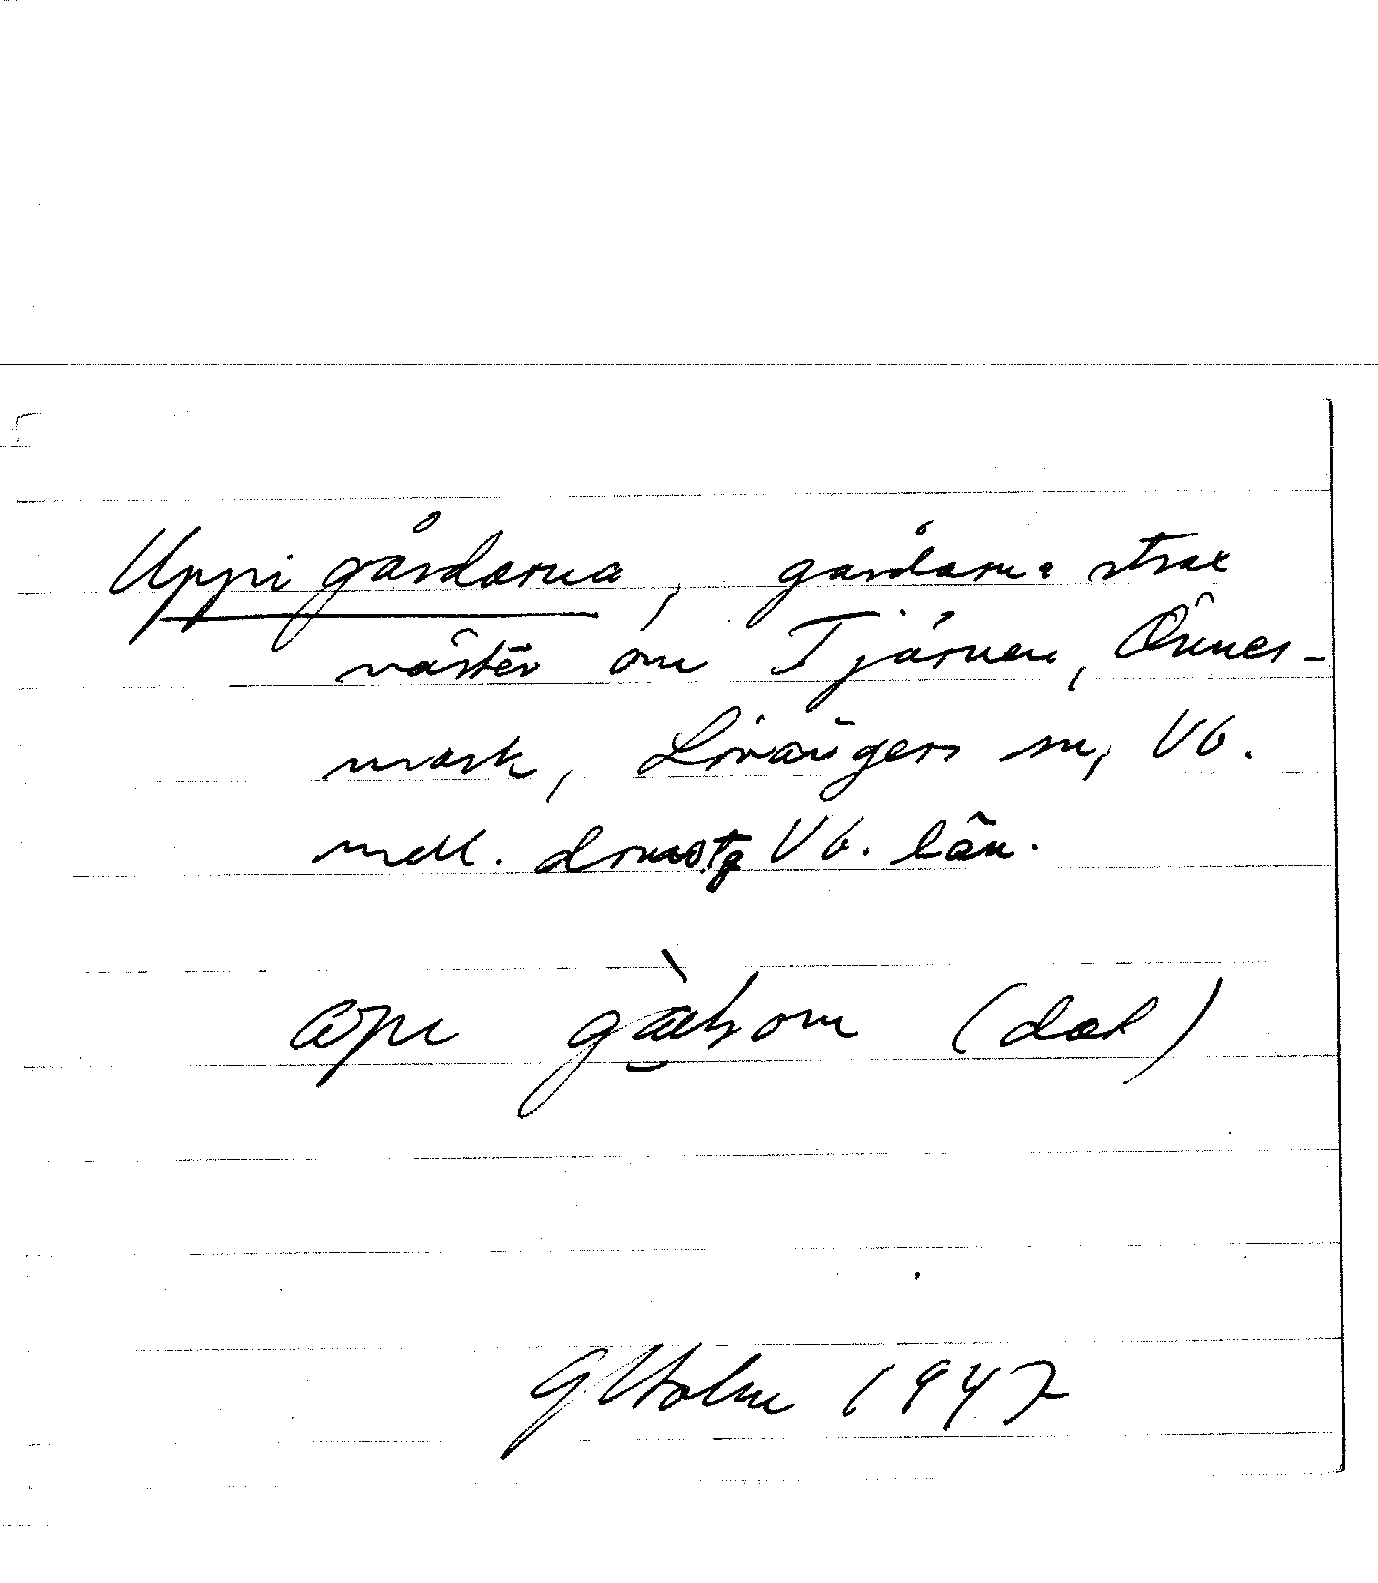 Uppi gårdarna, gårdarna strax
väster om Tjärnen, Önnes-
mark, Lövångers sn, Vb.
mell. domstg Vb. län.
opi gàḷom (dat)
G Holm 1947